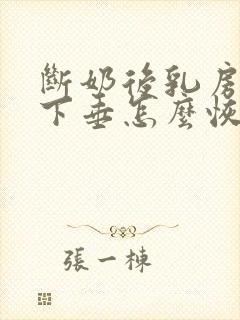 斷奶後乳房
下垂怎麼恢
張一棟